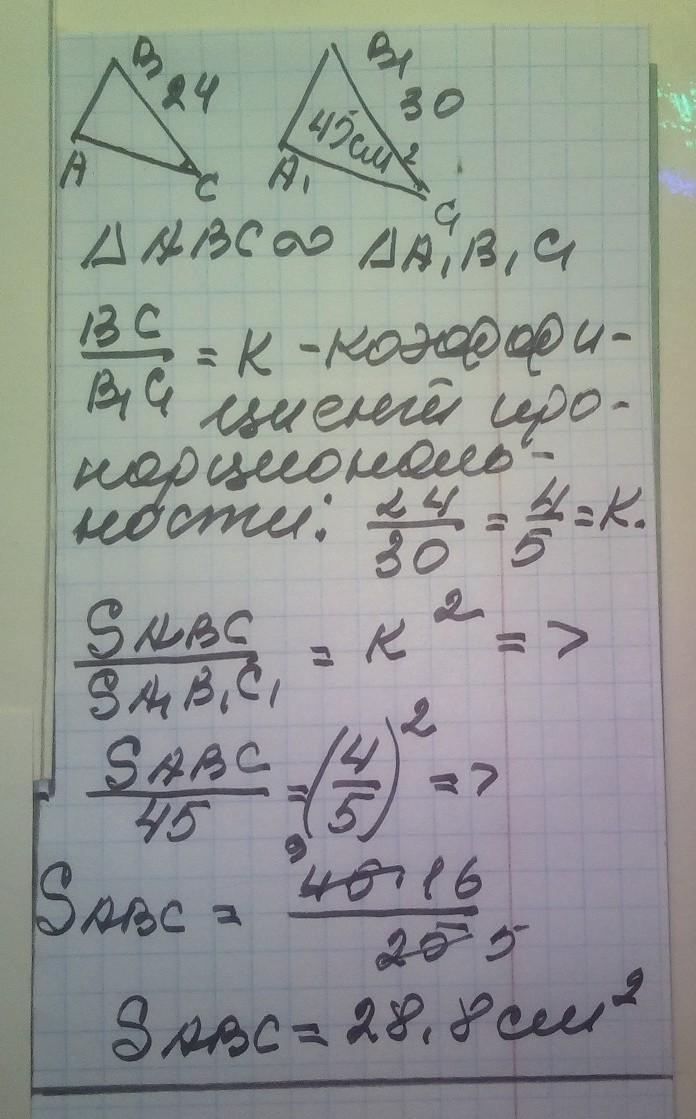 B 24 B₁ 30
45см²
A C A₁ C₁
ΔABC∞ ΔA₁B₁C₁
BC/B₁C₁ = K - коэффи-
циент про-
порциональ-
ности: 24/30 = 4/5 = K.
SABC/SA₁B₁C₁ = K² =>
SABC/45 = (4/5)² =>
SABC = 45⁹·16/25 5
SABC = 28,8см²